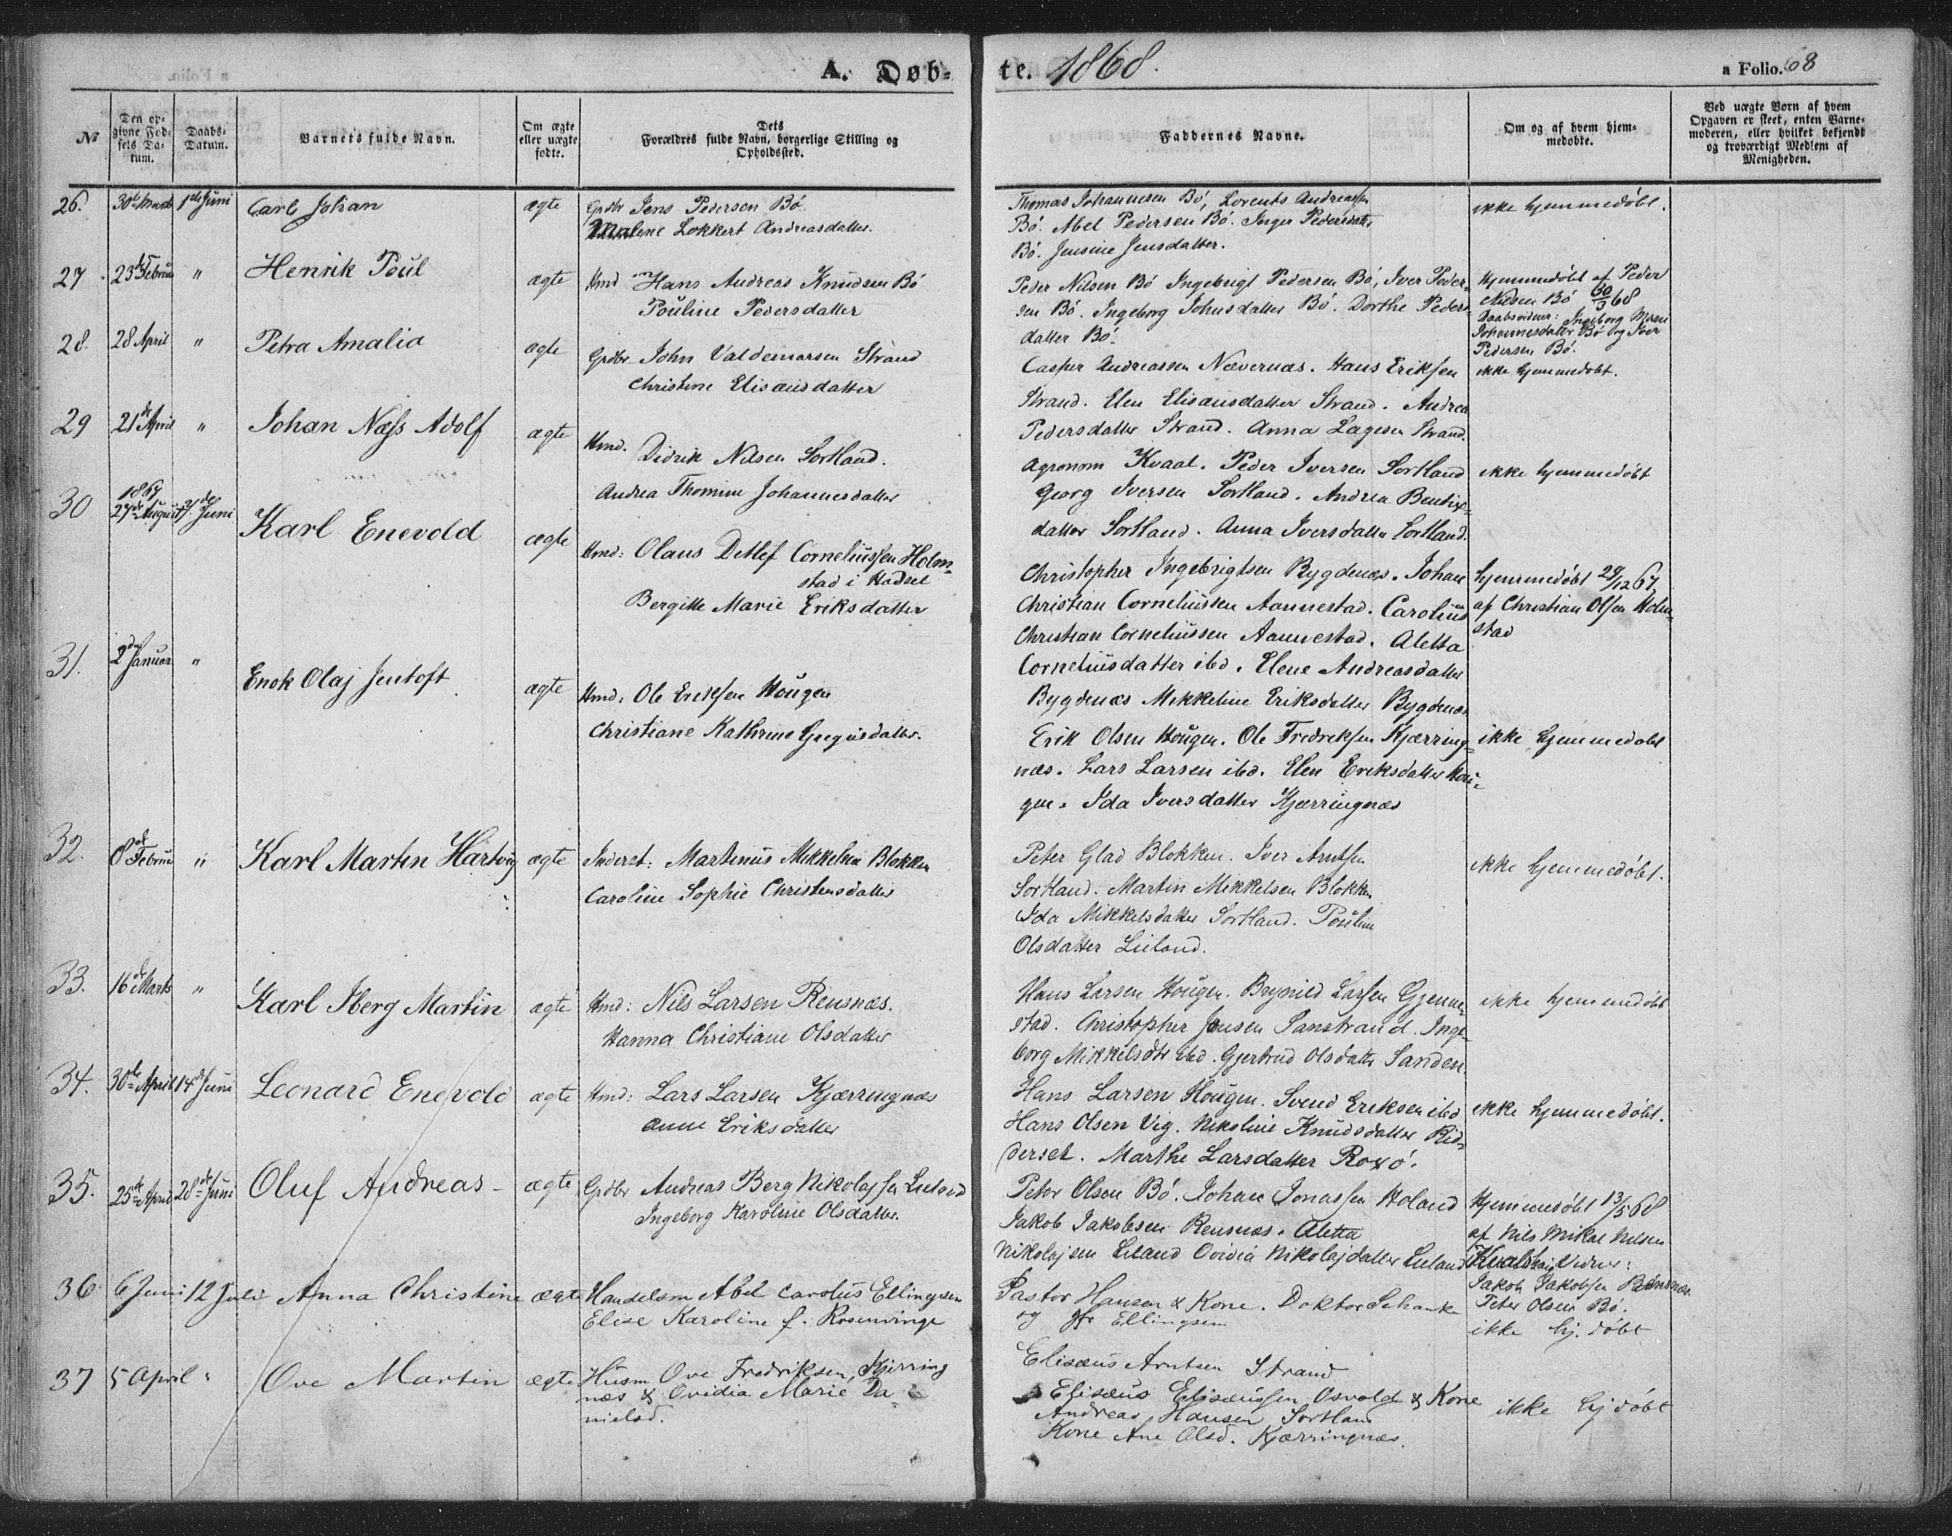 A. Døb- te. 1868.
a Folio. 68
No
Den op-
givne Fød-
sels Da-
tum.
Daabs-
Datum.
Barnets fulde Navn.
Om ægte
eller uægte
fødte.
Dets
Forældres fulde Navn, borgerlige Stilling og
Opholdssted.
Faddernes Navne.
Om og af hvem hjem-
medøbte.
Ved uægte Børn af hvem
Opgaven er skeet, enten Barne-
moderen, eller hvilket bekjendt
og troværdigt Medlem af
Menigheden.
26. 30te Marts 1ste Juni Carl Johan ægte Grdbr Jens Pedersen Bø
Malene Lokkert Andreasdatter.
Thomas Johannesen Bø, Lorents Andreassen
Bø. Abel Pedersen Bø. Inger Pedersdatter
Bø. Jensine Jensdatter.
ikke hjemmedøbt.
27. 23de Februar " Henrik Poul ægte Hmd Hans Andreas Knudsen Bø
Pouline Pedersdatter
Peder Nilsen Bø Ingebrigt Pedersen Bø, Iver Peder-
sen Bø. Ingeborg Johnsdatter Bø. Dorthe Peders-
datter Bø.
Hjemmedøbt af Peder
Nilsen Bø 30/3 68
Daabsvidner: Ingeborg Marie
Johannesdatter Bø og Iver
Pedersen Bø.
28. 28 April " Petra Amalia ægte Grdbr John Valdemarsen Strand
Christine Elisæusdatter
Casper Andreassen Nævernæs. Hans Eriksen
Strand. Elen Elisæusdatter Strand. Andrea
Pedersdatter Strand. Anna Lagesen Strand.
ikke hjemmedøbt.
29 21de April " Johan Næss Adolf ægte Hmd. Didrik Nilsen Sortland.
Andrea Thomine Johannesdatter
Agronom Kvaal. Peder Iversen Sortland
Georg Iversen Sortland. Andrea Bendix-
datter Sortland. Anna Iversdatter Sortland.
ikke hjemmedøbt
30 1867
27de August 7de Juni Karl Enevold ægte Hmd: Olaus Detlef Corneliussen Holm-
stad i Hadsel
Bergitte Marie Eriksdatter
Christopher Ingebrigtsen Bygdenæs. Johan
Christian Corneliussen Aannestad. Carolius
Christian Corneliussen Aannestad. Aletta
Corneliusdatter ibd. Elene Andreasdatter
Bygdenæs Mikkeline Eriksdatter Bygdenæs
hjemmedøbt 29/12 67
af Christian Olsen Holm-
stad
31. 2den Januar " Enok Olaj Jentoft ægte Hmd: Ole Eriksen Hougen
Christiane Kathrine Gregusdatter.
Erik Olsen Hougen. Ole Fredriksen Kjærring-
næs. Lars Larsen ibd. Elen Eriksdatter Hou-
gen. Ida Iversdatter Kjærringnæs
ikke hjemmedøbt
32. 8de Februar " Karl Martin Hartvig ægte Inderst: Martinus Mikkelsen Blokken
Caroline Sophie Christensdatter
Peter Glad Blokken. Iver Arntsen
Sortland. Martin Mikkelsen Blokken
Ida Mikkelsdatter Sortland. Pouline
Olsdatter Lieland.
ikke hjemmedøbt.
33. 16de Marts " Karl Iberg Martin ægte Hmd: Nils Larsen Rensnæs.
Hanna Christiane Olsdatter
Hans Larsen Hougen. Brynild Larsen Gjenne-
stad. Christopher Jensen Sanstrand. Inge-
borg Mikkelsdtr ibd. Gjertrud Olsdatter Sanden
ikke hjemmedøbt
34. 30te April 14de Juni Leonard Enevold ægte Hmd: Lars Larsen Kjærringnæs
Anne Eriksdatter
Hans Larsen Hougen. Svend Eriksen ibd
Hans Olsen Vig. Nikoline Knudsdatter Rid-
derset. Marthe Larsdatter Roxø.
ikke hjemmedøbt.
35. 25de April 28de Juni Oluf Andreas ægte Grdbr Andreas Berg Nikolajsen Lieland
Ingeborg Karoline Olsdatter.
Peter Olsen Bø. Johan Jonassen Holand
Jakob Jakobsen Rensnæs. Aletta
Nikolajsen Lieland Ovidia Nikolajdatter Lieland
Hjemmedøbt 13/5 68
af Nils Mikal Nilsen
Kvalshaug Vidner:
Jakob Jakobsen Rensnæs.
Peter Olsen Bø.
36. 6 Juni 12 Juli Anna Christine ægte Handelsm Abel Carolus Ellingsen
Elise Karoline f. Rosenvinge
Pastor Hansen & Kone. Doktor Schanke
og Jfr Ellingsen
ikke hj. døbt
37 5 April " Ove Martin ægte Husm Ove Fredriksen, Kjerring
næs & Ovidia Marie Da-
nielsd.
Elisæus Arntsen Strand
Elisæus Elisæussen Osvold & Kone
Andreas Hansen Sortland
Kone Ane Olsd. Kjærringnæs.
ikke hjdøbt